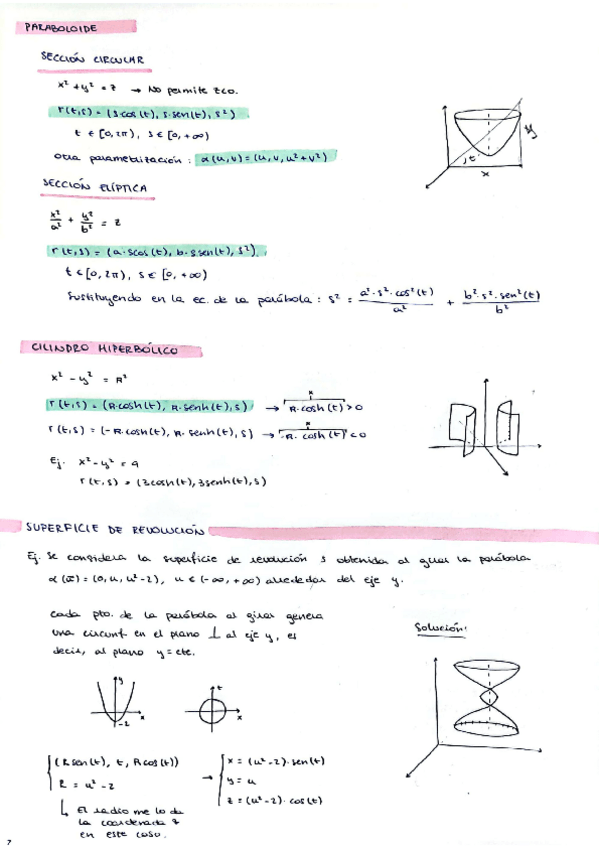 PARABOLOIDE
SECCIÓN CIRCULAR
x² + y² = z → No permite z<0.
r(t,s) = (s·cos(t), s·sen(t), s²)
t ∈ [0, 2π), s ∈ [0, +∞)
Otra parametrización: α(u,v) = (u, v, u² + v²)
t
x
SECCIÓN ELÍPTICA
x²/a² + y²/b² = z
r(t,s) = (a·s cos(t), b·s sen(t), s²)
t ∈ [0, 2π), s ∈ [0, +∞)
Sustituyendo en la ec. de la parábola: s² = a²·s²·cos²(t)/a² + b²·s²·sen²(t)/b²
CILINDRO HIPERBÓLICO
x² - y² = R²
r(t,s) = (R·cosh(t), R·senh(t), s) → R·cosh(t) > 0
x
r(t,s) = (-R·cosh(t), R·senh(t), s) → -R·cosh(t) < 0
x
Ej. x² - y² = 9
r(t,s) = (3cosh(t), 3senh(t), s)
SUPERFICIE DE REVOLUCIÓN
Ej. Se considera la superficie de revolución S obtenida al girar la parábola
α(u) = (0, u, u² - 2), u ∈ (-∞, +∞) alrededor del eje y.
Cada pto. de la parábola al girar genera
una circunf en el plano ⊥ al eje y, es
decir, al plano y = cte.
Solución:
y
x
-2
t
x
(R sen(t), t, R cos(t))
R = u² - 2
→ x = (u² - 2)·sen(t)
y = u
z = (u² - 2)·cos(t)
El radio me lo da
la coordenada z
en este caso.
7